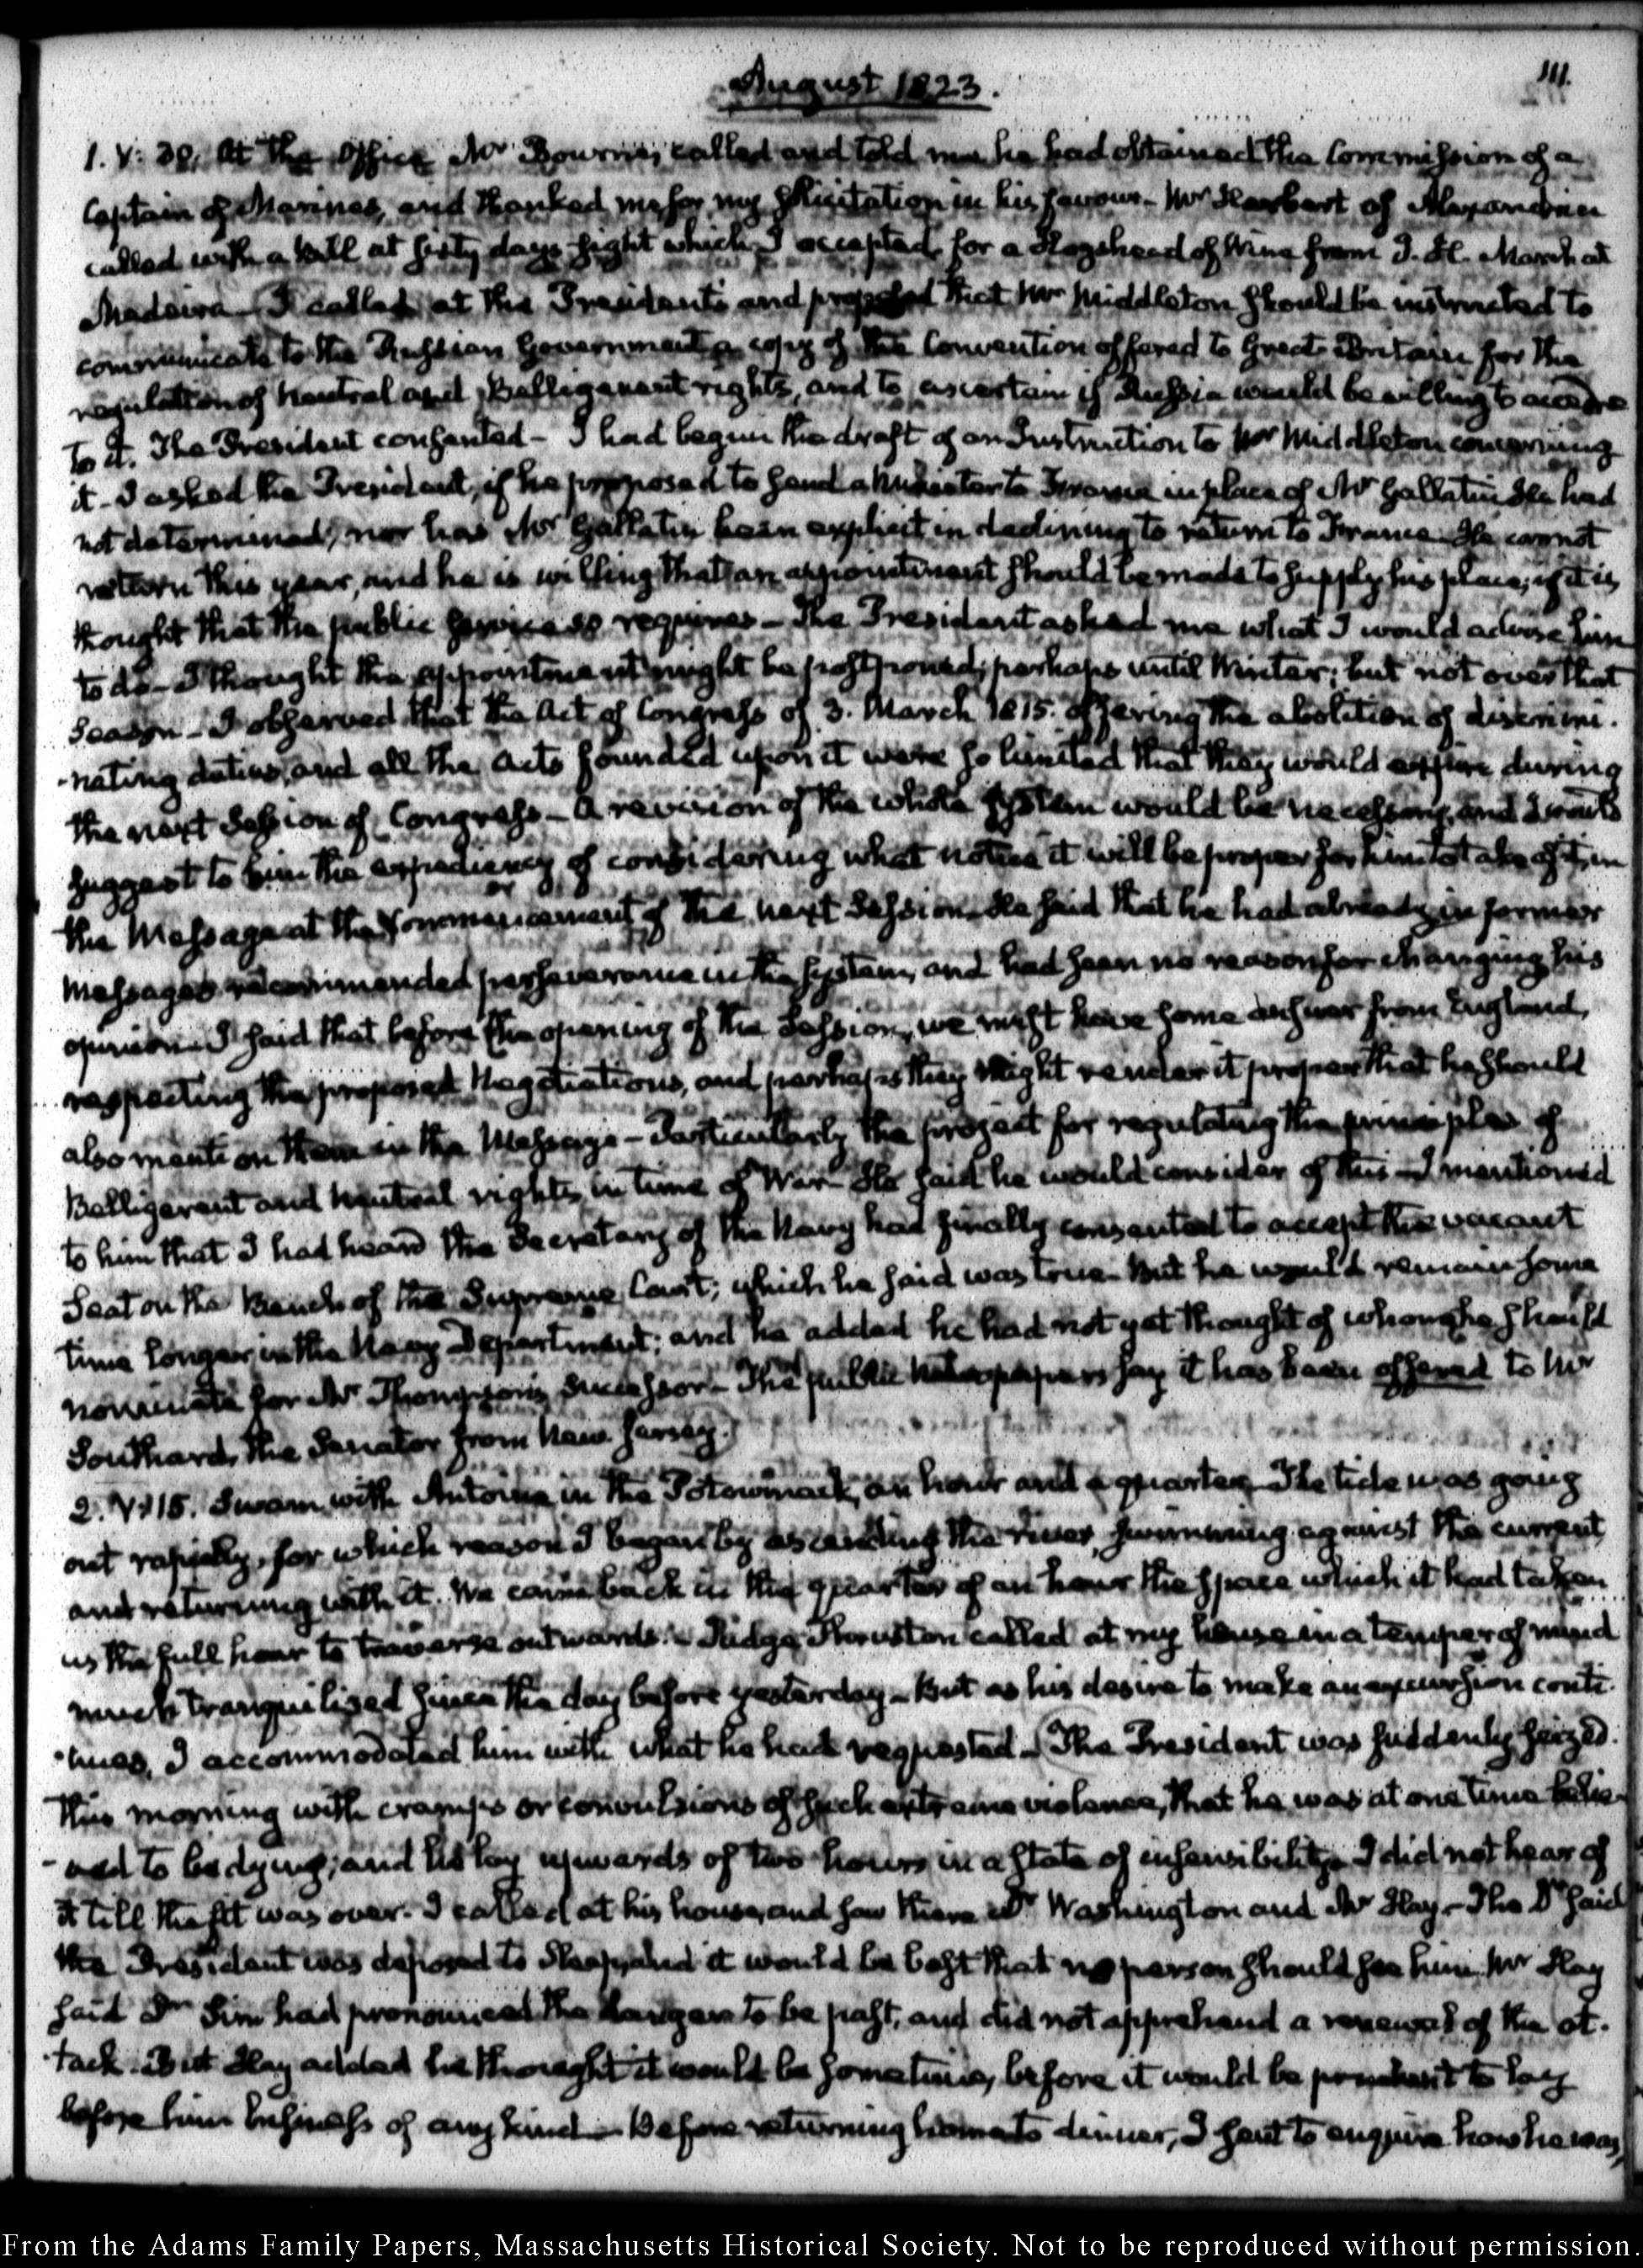 August 1823.
111.
1. V: 30. At the Office Mr Bourne, called and told me he had obtained the Commission of a
Captain of Marines, and thanked me for my solicitation in his favour- Mr Herbert of Alexandria
called with a bill at sixty days sight which I accepted, for a Hogshead of Wine from J. H. March at
Madeira- I called at the President's and proposed that Mr Middleton should be instructed to
communicate to the Russian Government a copy of the Convention offered to Great-Britain for the
regulation of neutral and Belligerent rights, and to ascertain if Russia would be willing to accede
to it. The President consented- I had begun the draft of an Instruction to Mr Middleton concerning
it- I asked the President, if he proposed to send a Minister to France in place of Mr Gallatin He had
not determined; nor has Mr Gallatin been explicit in declining to return to France. He cannot
return this year, and he is willing that an appointment should be made to supply his place, if it is
thought that the public service so requires- The President asked me what I would advise him
to do- I thought the appointment might be postponed, perhaps until Winter; but not over that
season- I observed that the Act of Congress of 3. March 1815. offering the abolition of discrimi-
-nating duties, and all the Acts founded upon it were so limited that they would expire during
the next Session of Congress- A revision of the whole system would be necessary, and I would
suggest to him the expediency of considering what notice it will be proper for him to take of it, in
the Message at the Commencement of the next Session. He said that he had already in former
Messages recommended perseverance in the system, and had seen no reason for changing his
opinion- I said that before the opening of the Session, we must have some answer from England,
respecting the proposed Negotiations, and perhaps they might render it proper that he should
also mention them in the Message- Particularly the project for regulating the principles of
Belligerent and neutral rights in time of War- He said he would consider of this- I mentioned
to him that I had heard the Secretary of the Navy had finally consented to accept the vacant
Seat on the Bench of the Supreme Court; which he said was true- But he would remain some
time longer in the Navy Department; and he added he had not yet thought of whom he should
nominate for Mr Thompson's successor- The public Newspapers say it has been offered to Mr
Southard, the Senator from New-Jersey.
2. V:15. Swam with Antoine in the Potowmack, an hour and a quarter- The tide was going
out rapidly, for which reason I began by ascending the river, swimming against the current,
and returning with it. We came back in the quarter of an hour the space which it had taken
us the full hour to traverse outwards.- Judge Thruston called at my house in a temper of mind
much tranquilized since the day before yesterday- But as his desire to make an excursion conti-
-nues, I accommodated him with what he had requested- The President was suddenly seized
this morning with cramps or convulsions of such extreme violence, that he was at one time belie-
-ved to be dying; and he lay upwards of two hours in a state of insensibility- I did not hear of
it till the fit was over. I called at his house, and saw there Dr Washington and Mr Hay- The Dr said
the President was disposed to sleep, and it would be best that no person should see him. Mr Hay
said Dr Sim had pronounced the danger to be past, and did not apprehend a renewal of the at-
-tack. But Hay added he thought it would be sometime, before it would be prudent to lay
before him business of any kind- Before returning home to dinner, I sent to enquire how he was,
From the Adams Family Papers, Massachusetts Historical Society. Not to be reproduced without permission.